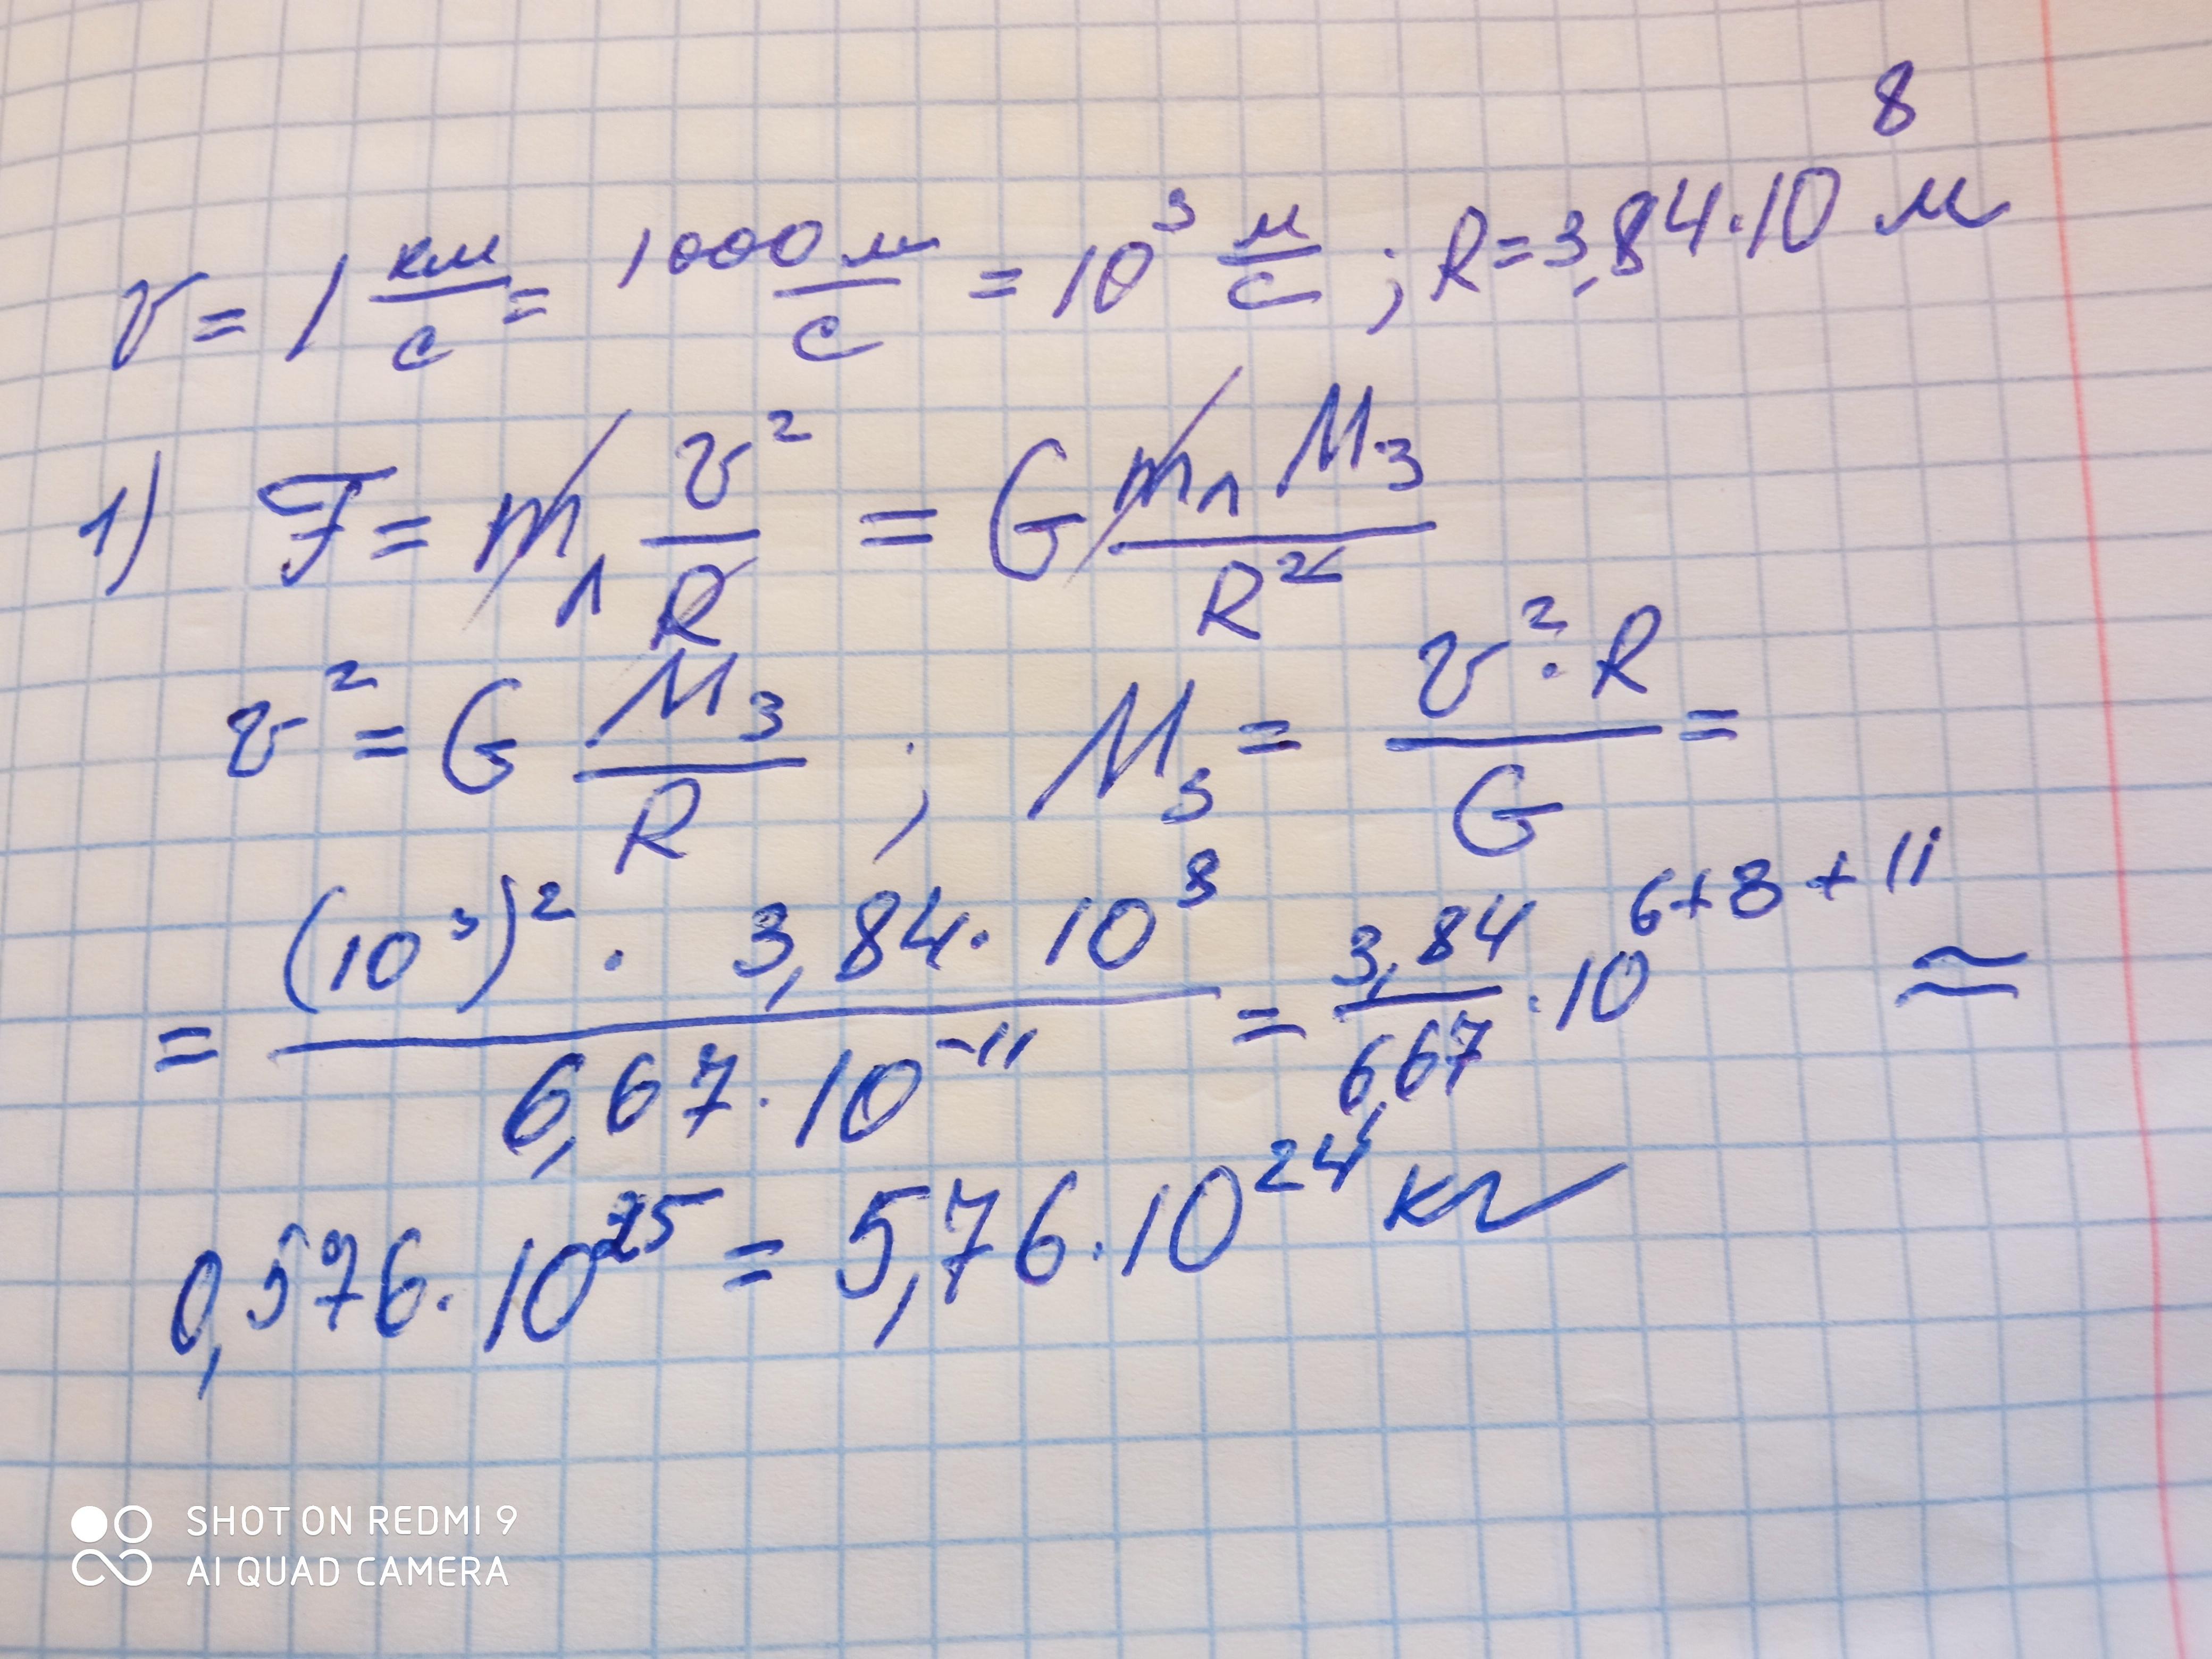 v = 1 км/с = 1000 м/с = 10³ м/с ; R = 3,84·10⁸ м
1) F = m₁ v²/R = G m₁ M₃/R²
v² = G M₃/R ; M₃ = v²·R/G =
= (10³)² · 3,84·10⁸ / 6,67·10⁻¹¹ = 3,84/6,67 · 10⁶⁺⁸⁺¹¹ ≃
0,576·10²⁵ = 5,76·10²⁴ кг
SHOT ON REDMI 9
AI QUAD CAMERA